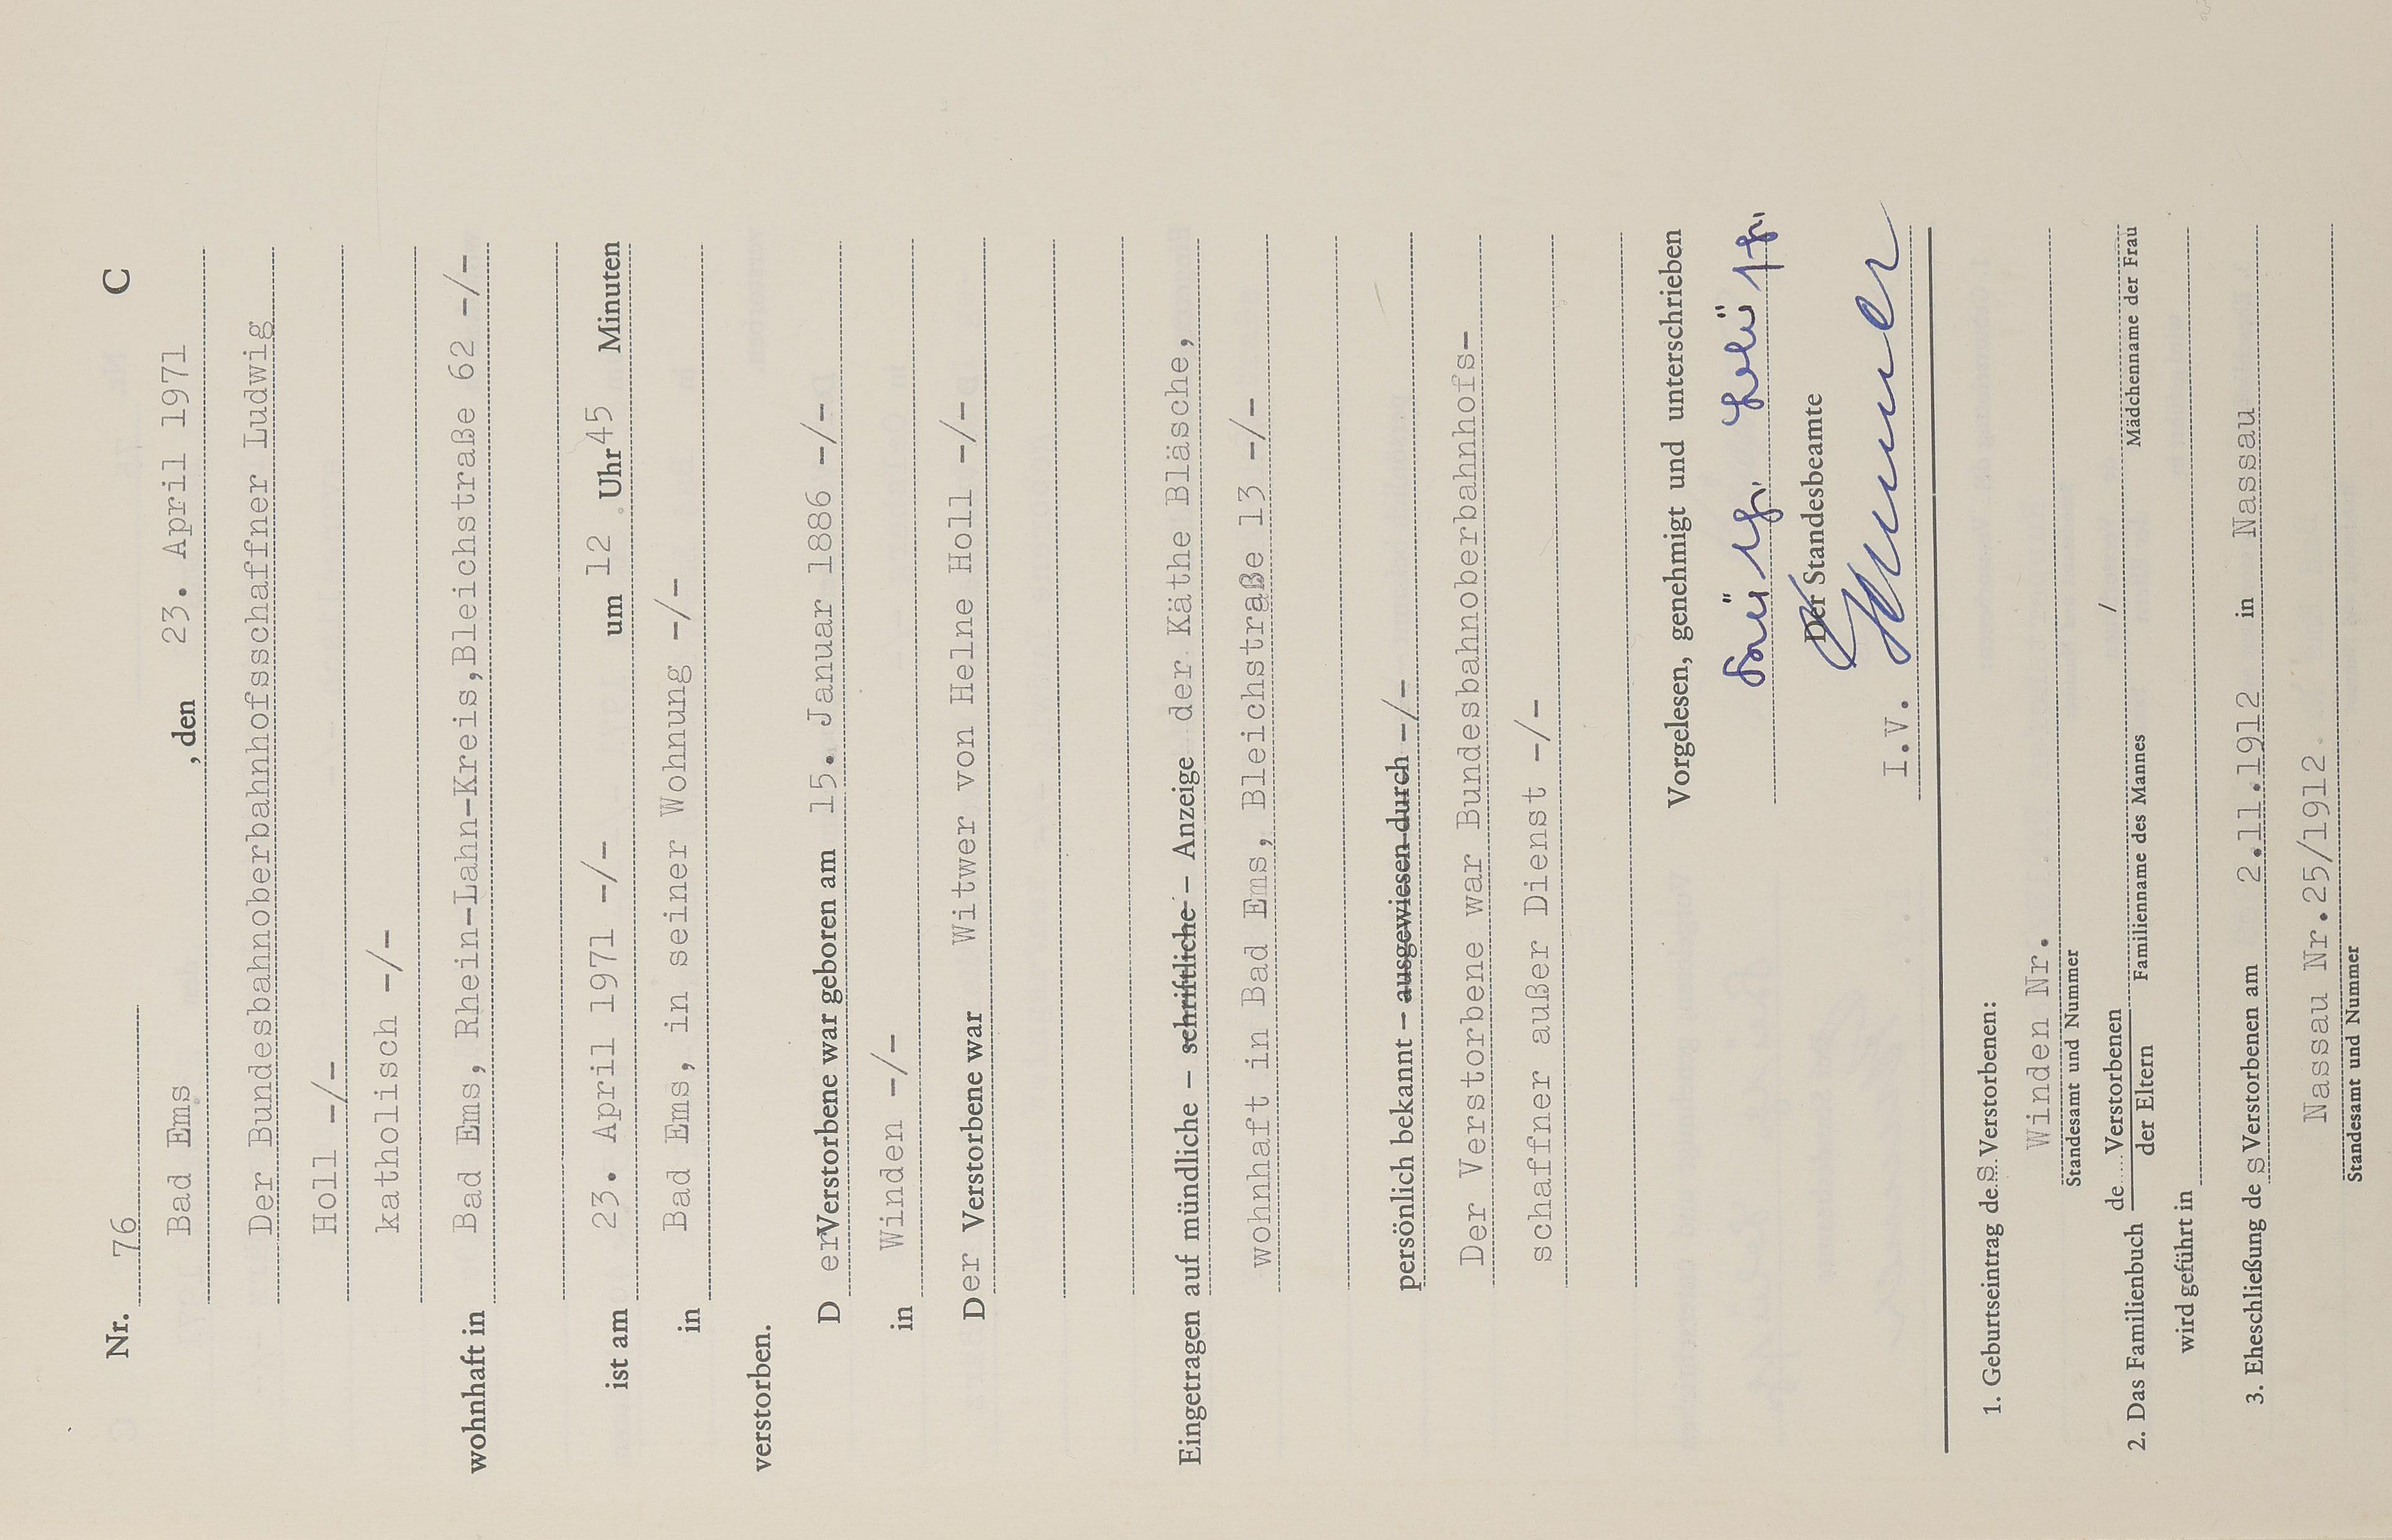 Nr. 76 C
Bad Ems , den 23. April 1971
Der Bundesbahnoberbahnhofsschaffner Ludwig
Holl -/-
katholisch -/-
wohnhaft in Bad Ems, Rhein-Lahn-Kreis,Bleichstraße 62 -/-
ist am 23. April 1971 -/- um 12 Uhr 45 Minuten
in Bad Ems, in seiner Wohnung -/-
verstorben.
D er Verstorbene war geboren am 15. Januar 1886 -/-
in Winden -/-
Der Verstorbene war Witwer von Helne Holl -/-
Eingetragen auf mündliche – schriftliche – Anzeige der Käthe Bläsche,
wohnhaft in Bad Ems, Bleichstraße 13 -/-
persönlich bekannt – ausgewiesen durch -/-
Der Verstorbene war Bundesbahnoberbahnhofs-
schaffner außer Dienst -/-
Vorgelesen, genehmigt und unterschrieben
Der Standesbeamte
I.V.
1. Geburtseintrag des Verstorbenen:
Winden Nr.
Standesamt und Nummer
2. Das Familienbuch de Verstorbenen /
der Eltern Familienname des Mannes Mädchenname der Frau
wird geführt in
3. Eheschließung des Verstorbenen am 2.11.1912 in Nassau
Nassau Nr.25/1912
Standesamt und Nummer